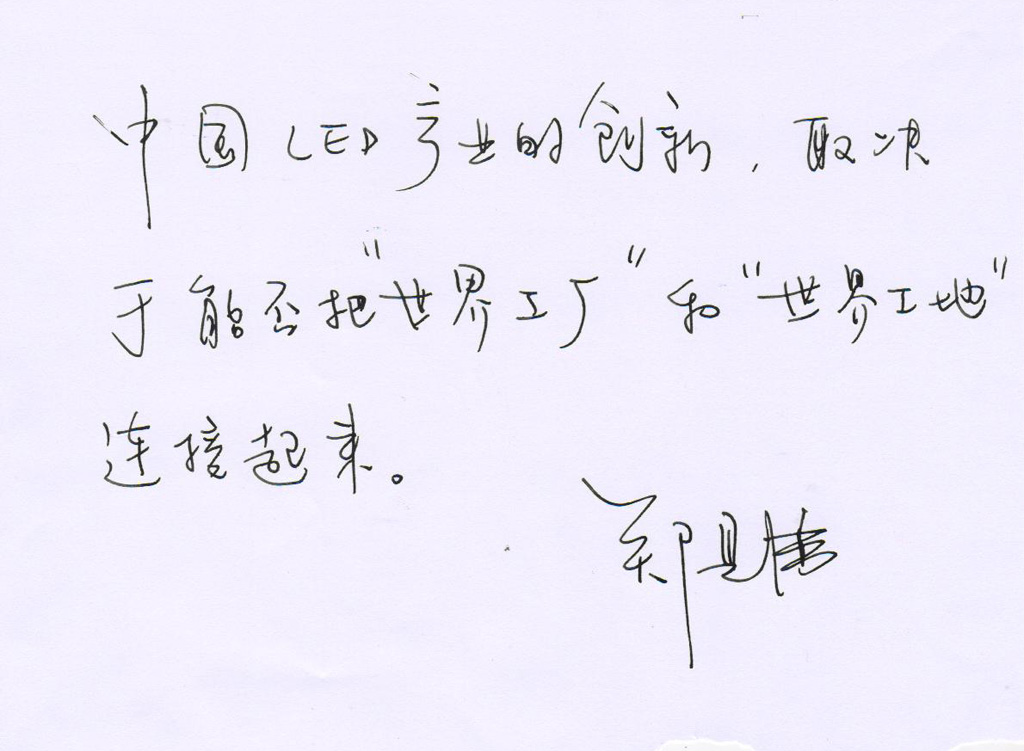 中国LED产业的创新，取决
于能否把"世界工厂"和"世界工地"
连接起来。
郑